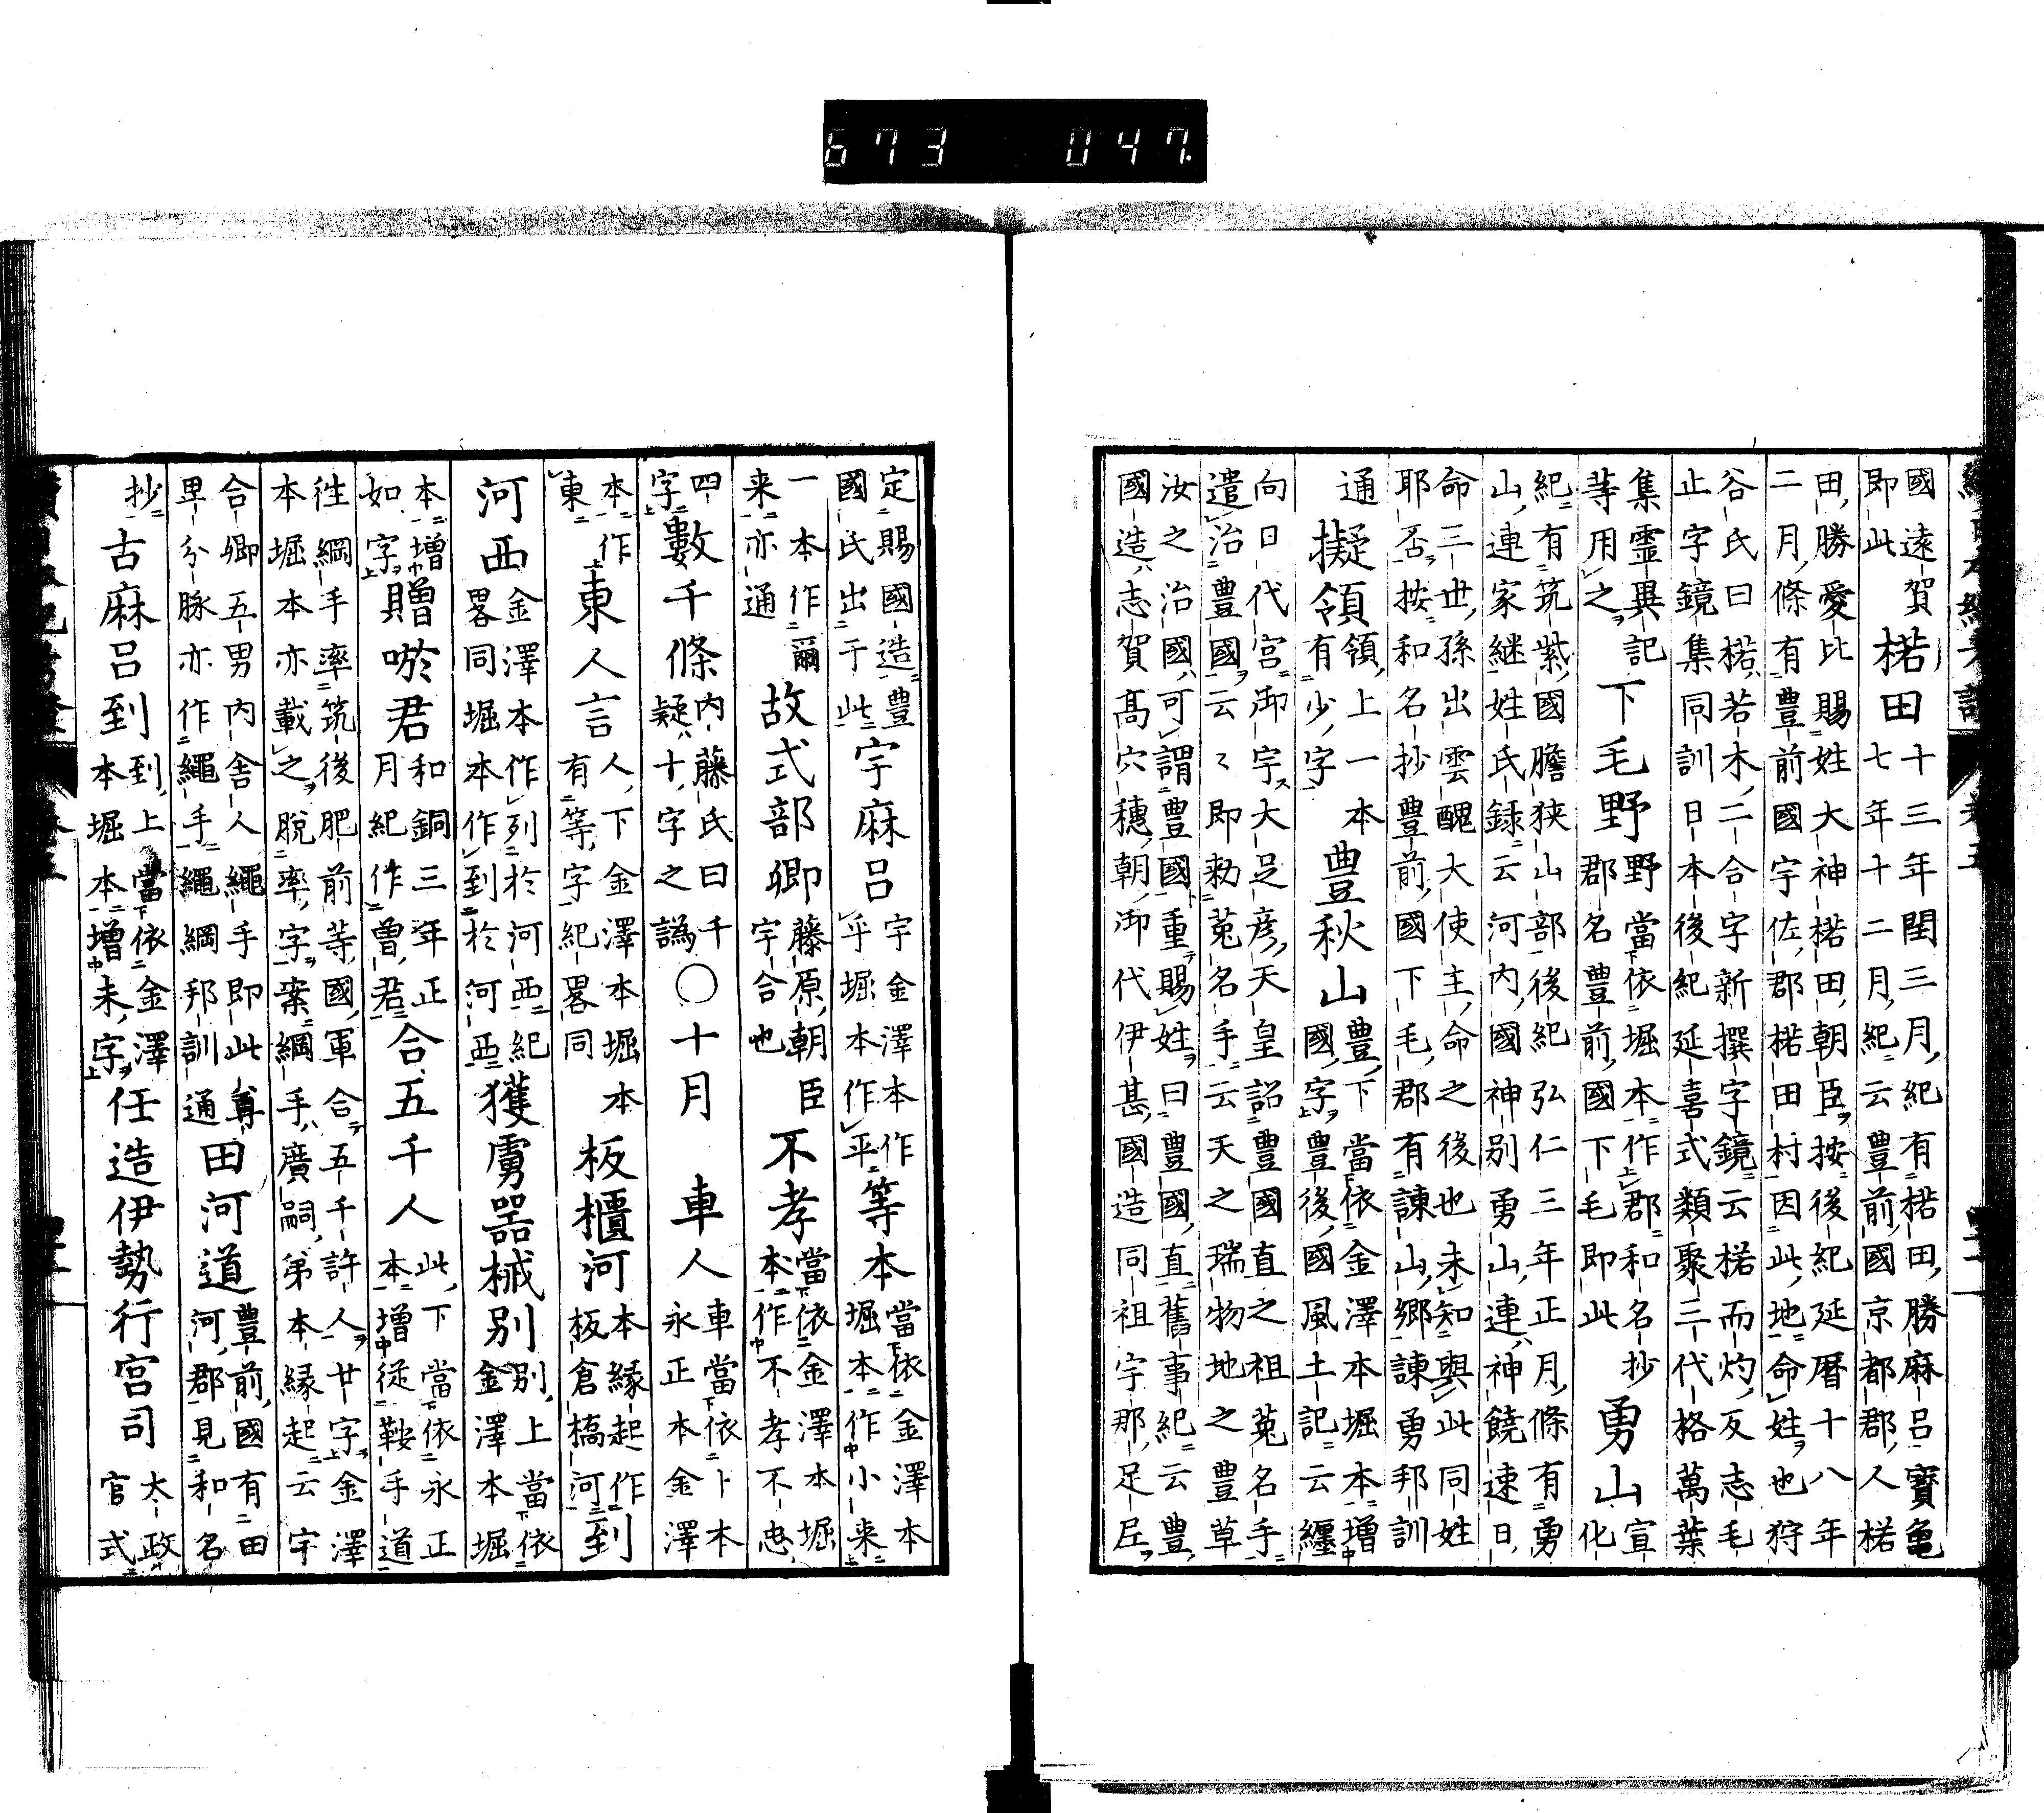 673 047
國遠賀即此楉田十三年閏三月紀有楉田勝麻呂寶龜七年十二月紀云豊前國京都郡人楉
田勝愛比賜姓大神楉田朝臣按後紀延暦十八年二月條有豊前國宇佐郡楉田村因此地命姓也狩
谷氏曰楉若木二合字新撰字鏡云楉而灼反志毛止字鏡集同訓日本後紀延喜式類聚三代格萬葉
集霊異記等用之下毛野野當依堀本作郡和名抄郡名豊前國下毛即此勇山宣化
紀有筑紫國膽狭山部後紀弘仁三年正月條有勇山連家継姓氏録云河内國神別勇山連神饒速日
命三世孫出雲醜大使主命之後也未知與此同姓耶否按和名抄豊前國下毛郡有諫山郷諫勇邦訓
通擬領領上一本有少字豊秋山豊下當依金澤本堀本増國字豊後國風土記云纏
向日代宮御宇大足彦天皇詔豊國直之祖菟名手遣治豊國云〻即勅菟名手云天之瑞物地之豊草
汝之治國可謂豊國重賜姓曰豊國直舊事紀云豊國造志賀髙穴穗朝御代伊甚國造同祖宇那足尼
定賜國造豊國氏出于此宇麻呂宇金澤本作乎堀本作平等本當依金澤本堀本作小来
一本作爾来亦通故式部卿藤原朝臣宇合也不孝當依金澤本堀本作不孝不忠
四字數千條内藤氏曰千疑十字之譌○十月車人車當依卜本永正本金澤
本作東東人言人下金澤本堀本有等字紀畧同板櫃河本縁起作板倉槗河到
河西金澤本作列於河西紀畧同堀本作到於河西獲虜器械別別上當依金澤本堀
本増如字贈唹君和銅三年正月紀作曽君合五千人此下當依永正本増従鞍手道
徃綱手率筑後肥前等國軍合五千許人廿字金澤本堀本亦載之脫率字案綱手廣嗣弟本縁起云宇
合卿五男内舎人繩手即此尊卑分脉亦作繩手繩綱邦訓通田河道豊前國有田河郡見和名
抄古麻呂到到上當依金澤本堀本増未字任造伊勢行宮司太政官式